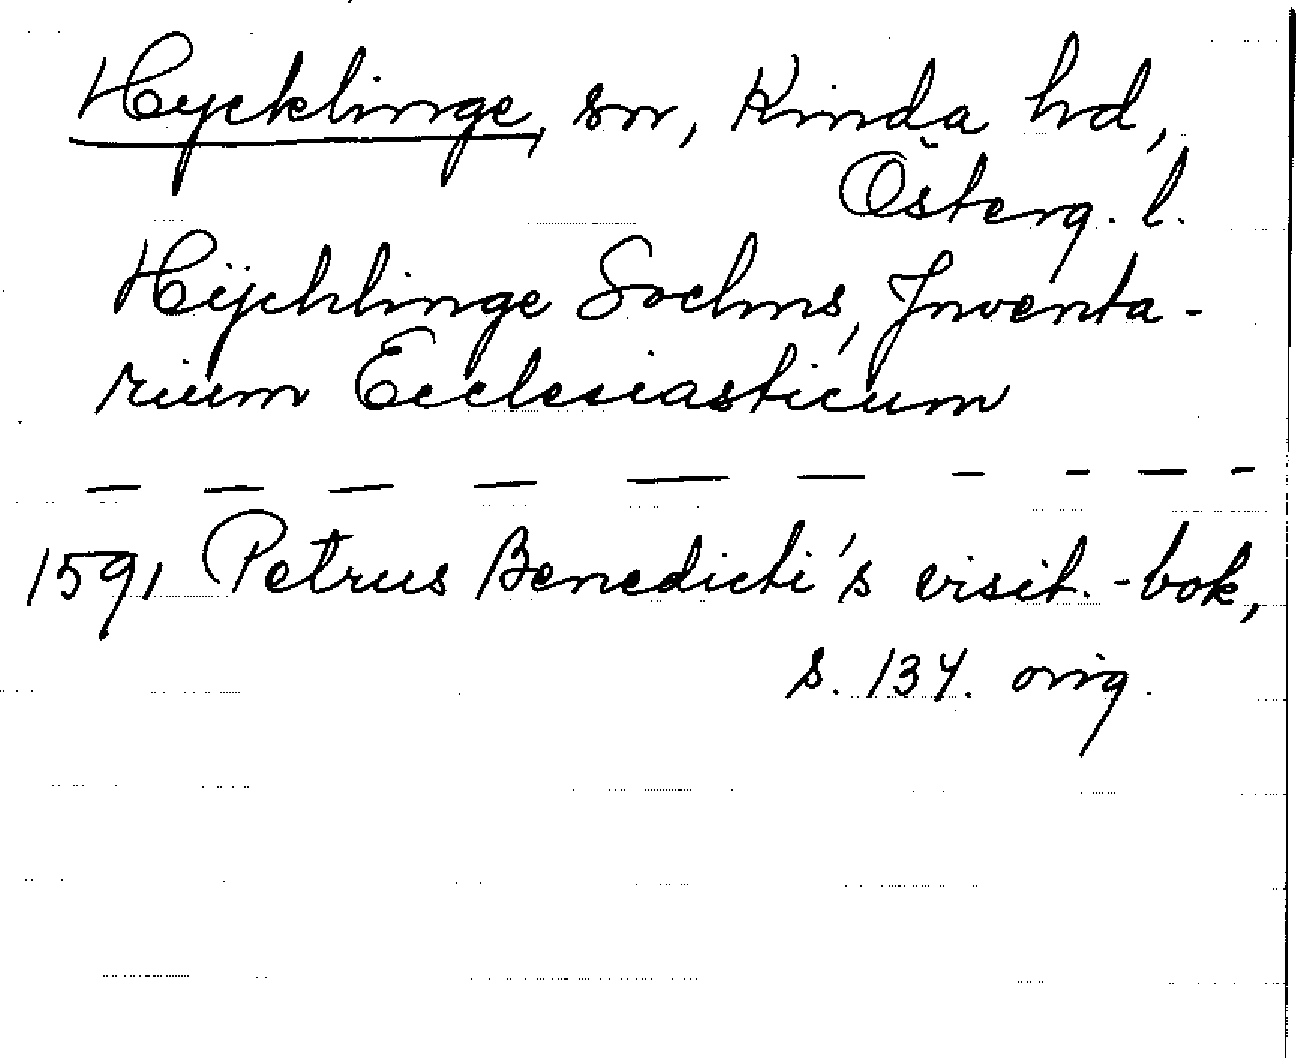 Hycklinge, sn, Kinda hd,
Österg. l.
Hÿchlinge Sochns, Inventa-
rium Ecclesiasticum
— — — — — — - - — -
1591 Petrus Benedicti's visit.-bok,
s. 134. orig.